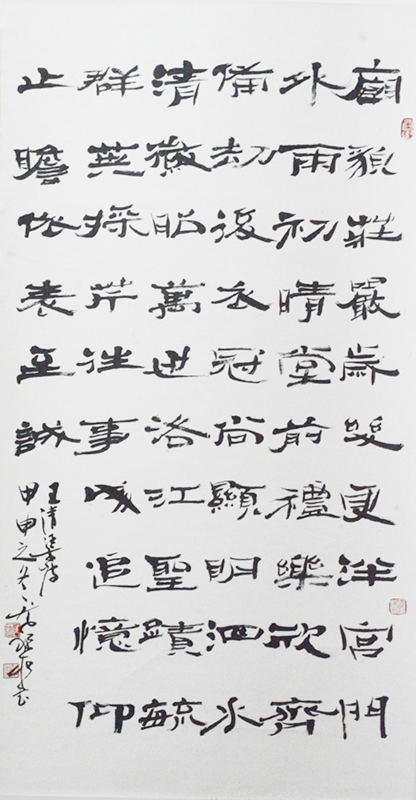 廟貌莊嚴歲更泮宮門
外雨初晴堂前禮樂欣齊
備劫後衣冠尚顯明泗水
清徽昭萬世洛江聖蹟毓
群英採芹往事成追憶仰
止瞻依表至誠
王清詩
甲申之冬